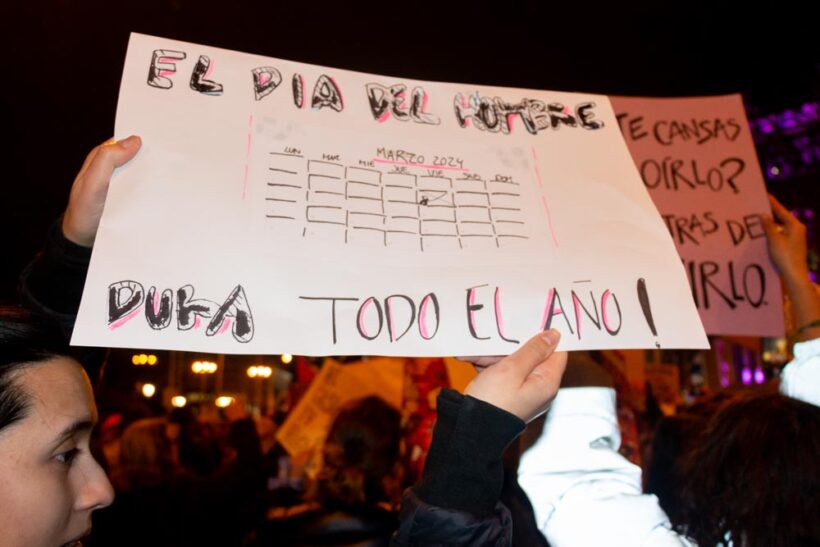 EL DIA DEL HOMBRE
MARZO 2024
LUN MAR MIE JUE VIE SAB DOM
8
DURA TODO EL AÑO!
TE CANSAS
OÍRLO?
TRAS DE
IRLO.